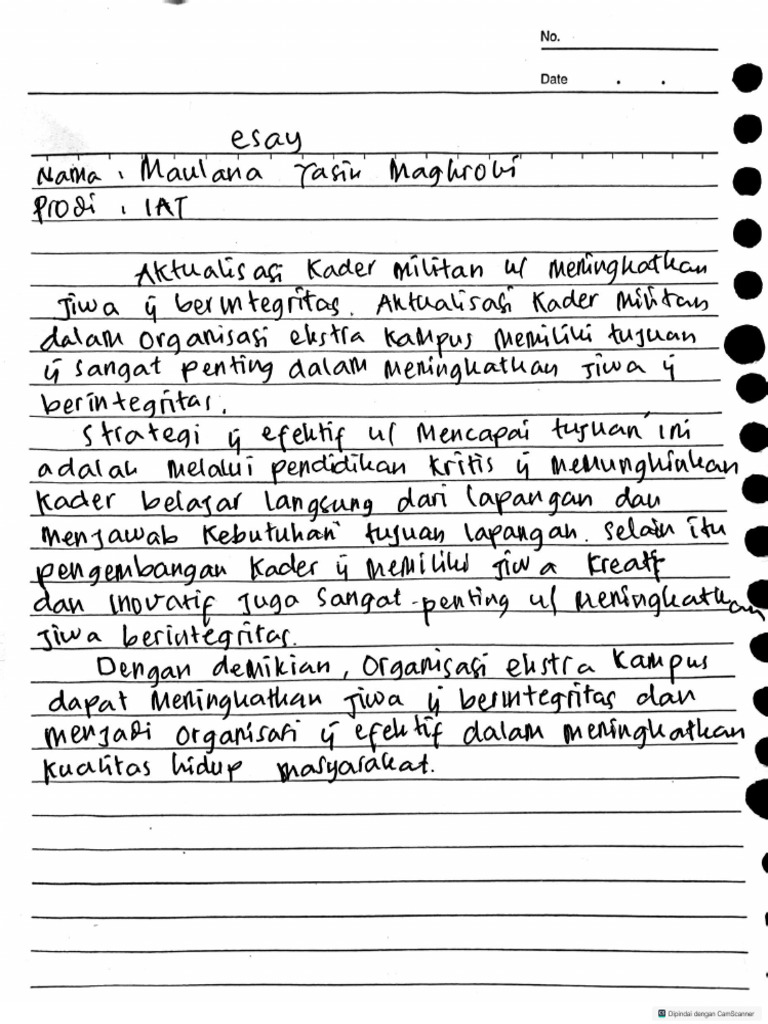 No.
Date . .
esay
Nama : Maulana Yasin Maghrobi
Prodi : IAT
Aktualisasi Kader Militan u/ meningkatkan
Jiwa yg berintegritas. Aktualisasi Kader Militan
dalam organisasi ekstra Kampus memiliki tujuan
yg sangat penting dalam meningkatkan Jiwa yg
berintegritas.
Strategi yg efektif u/ Mencapai tujuan ini
adalah melalui pendidikan kritis yg memungkinkan
Kader belajar langsung dari lapangan dan
menjawab Kebutuhan tujuan lapangan. Selain itu
pengembangan Kader yg memiliki Jiwa Kreatif
dan Inovatif Juga Sangat penting u/ meningkatkan
Jiwa berintegritas.
Dengan demikian, Organisasi ekstra Kampus
dapat meningkatkan Jiwa yg berintegritas dan
menjadi organisasi yg efektif dalam meningkatkan
kualitas hidup masyarakat.
Dipindai dengan CamScanner